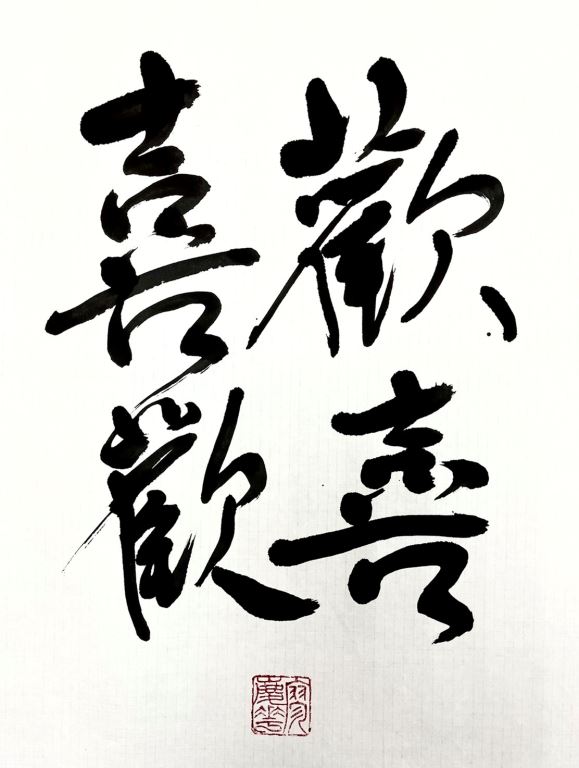 歡喜
喜歡